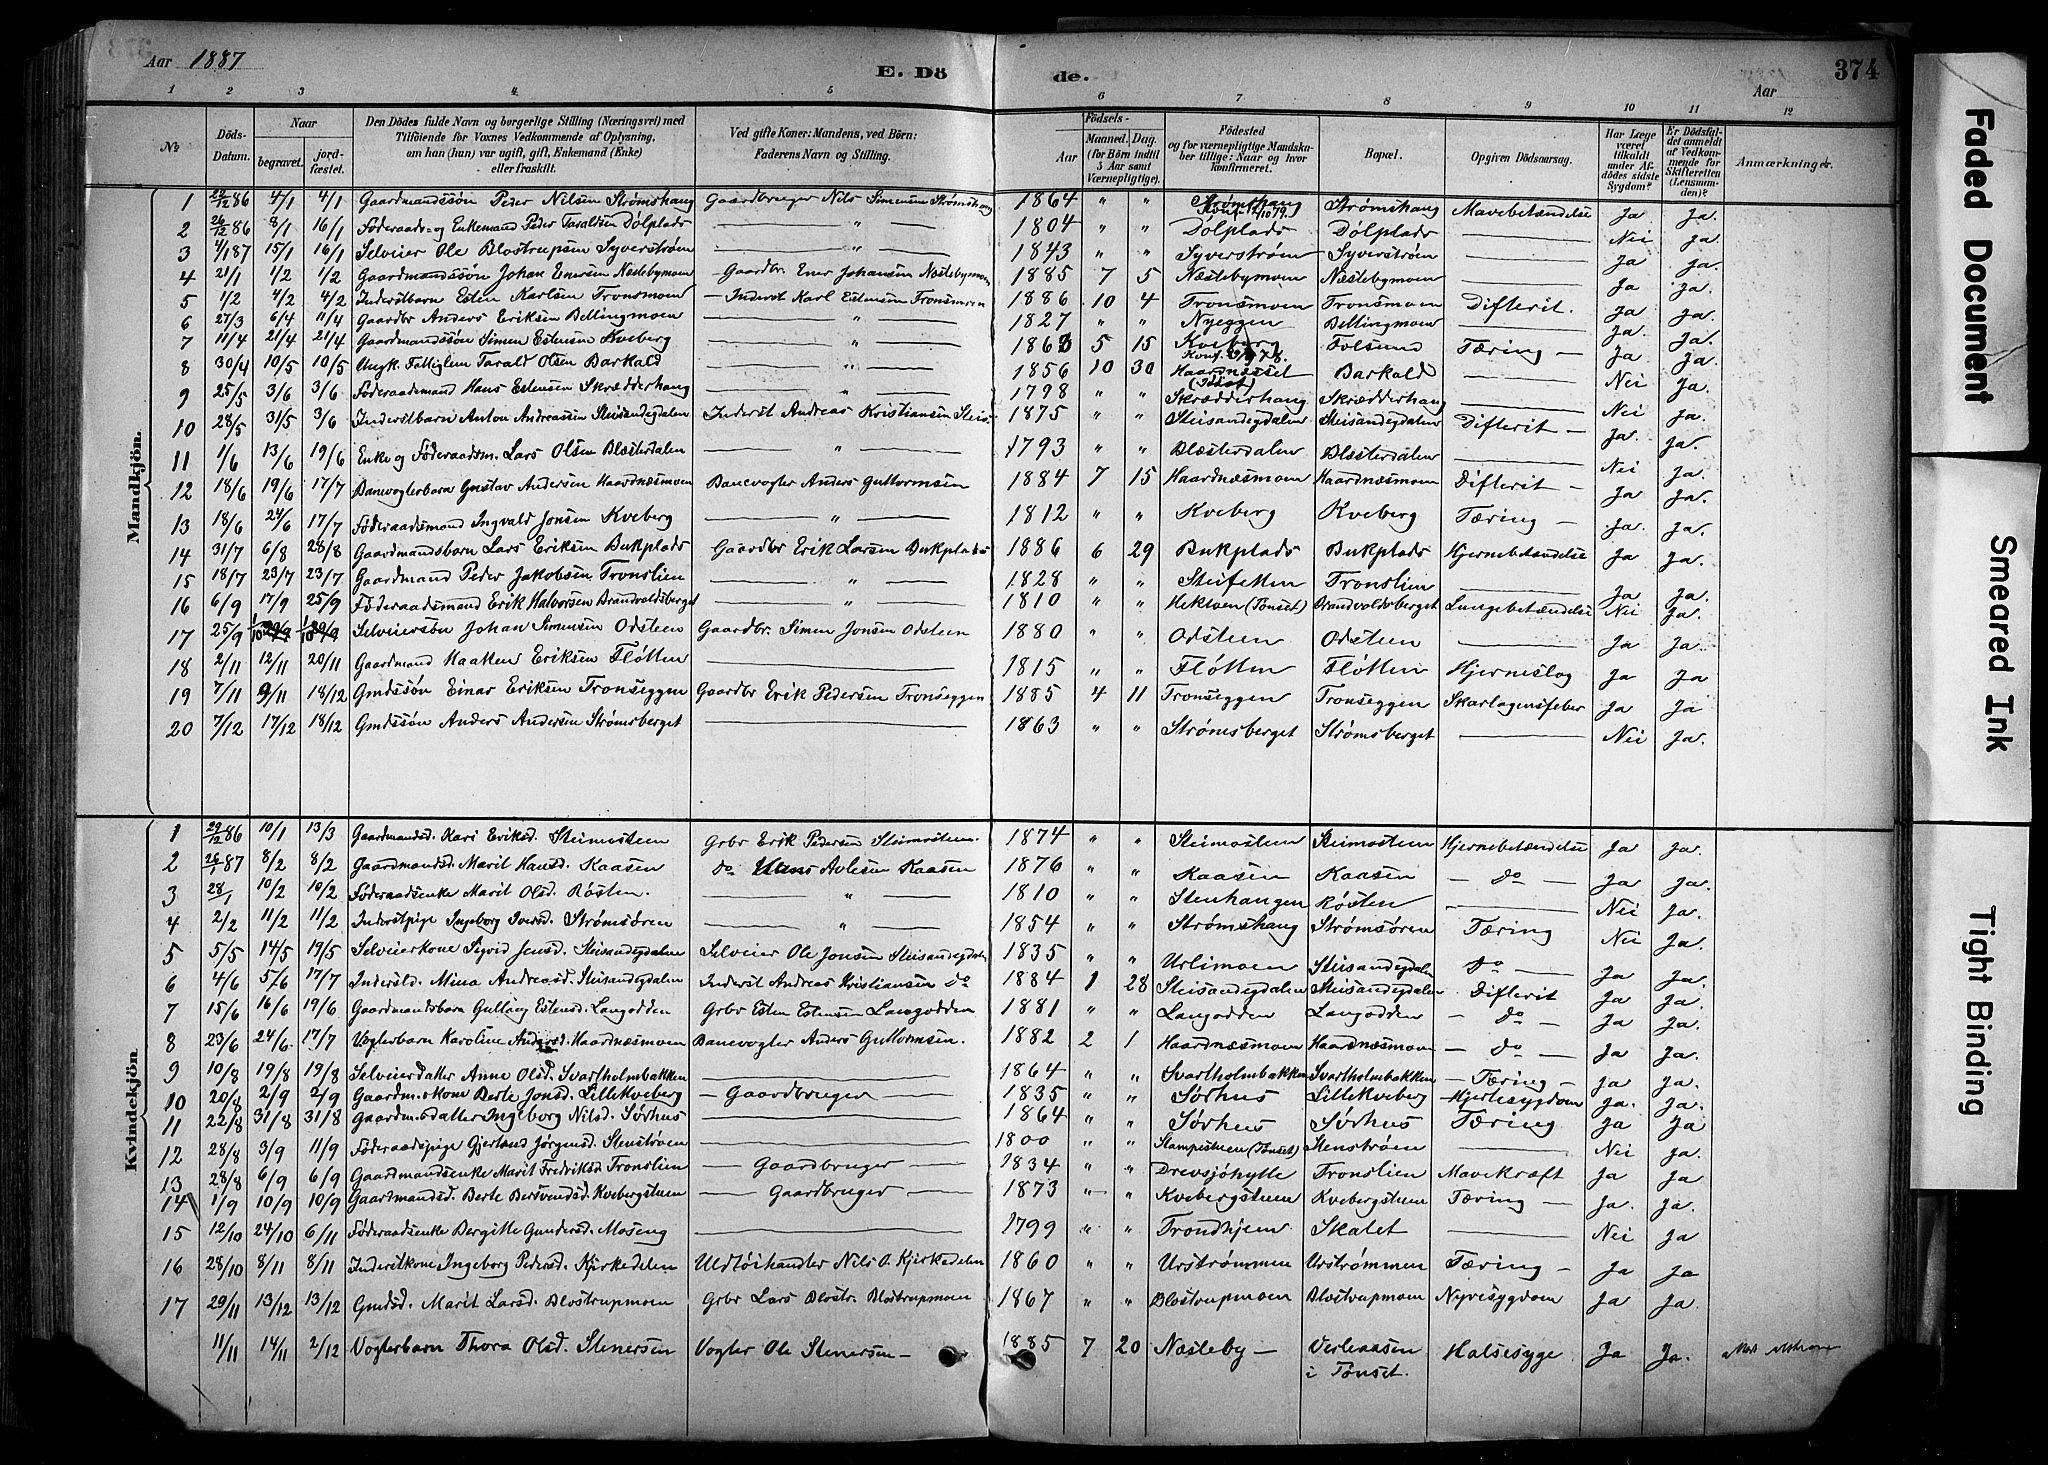 Aar 1887
E. Dö de.
374
Aar
1 2 3 4 5 6 7 8 9 10 11 12
№ Döds-Datum. Naar begravet. jordfæstet. Den Dödes fulde Navn og borgerlige Stilling (Næringsvei) med Tilföiende for Voxnes Vedkommende af Oplysning, om han (hun) var ugift, gift, Enkemand (Enke) eller fraskilt. Ved gifte Koner: Mandens, ved Börn: Faderens Navn og Stilling. Födsels- Aar Maaned. Dag. (for Börn indtil 5 Aar samt Værnepligtige). Födested og for værnepligtige Mandskaber tillige: Naar og hvor konfirmeret. Bopæl. Opgiven Dödsaarsag. Har Læge været tilkaldt under Afdödes sidste Sygdom? Er Dödsfaldet anmeldt af Vedkommende for Skifteretten (Lensmanden)? Anmærkninger.
Mandkjön.
1 22/12 86 4/1 4/1 Gaardmandssøn Peder Nilsen Strømshang Gaardbruger Nils Simensen Strømshang 1864 " " Strømshang Strømshang Mavebetændelse Ja Ja.
2 26/12 86 8/1 16/1 Föderaads- og Enkemand Peder Taraldsen Dölplads " 1804 " " Dölplads Dölplads Nei Ja
3 4/1 87 15/1 16/1 Selveier Ole Blostrupsen Syverstrøm " 1843 " " Syverstrøm Syverstrøm Ja Ja.
4 21/1 1/2 1/2 Gaardmandssön Johan Enersen Næstebymoen Gaardbr. Ener Johansen Næstebymoen 1885 7 5 Næstebymoen Næstebymoen Ja Ja.
5 1/2 4/2 4/2 Inderstbarn Esten Karlsen Tronsmoen Inderst Karl Estensen Tronsmoen 1886 10 4 Tronsmoen Tronsmoen Difterit. Ja Ja.
6 27/3 6/4 11/4 Gaardbr Anders Eriksen Bellingmoen " 1827 " " Nyeggen Bellingmoen Ja. Ja.
7 11/4 21/4 21/4 Gaardmandssön Simen Estensen Kveberg " 1863 5 15 Kveberg Folsund Tæring Ja Ja.
8 30/4 10/5 10/5 Ungk. Fattiglem Tarald Olsen Barkald " 1856 10 30 Haardnesset Barkald Nei Ja.
9 25/5 3/6 3/6 Föderaadsmand Hans Estensen Skrædderhang 1798 " " Skrædderhang Skrædderhang Nei Ja.
10 28/5 31/5 3/6 Inderstbarn Anton Andreassen Steisandegdalen Inderst Andreas Kristiansen Steis. 1875 " " Steisandegdalen Steisandegdalen Difterit Ja. Ja.
11 1/6 13/6 19/6 Enke og Föderaadsm. Lars Olsen Blæsterdalen " 1793 " " Blæsterdalen Blæsterdalen Nei Ja.
12 18/6 19/6 17/7 Banevogterbarn Gustav Andersen Haardnæsmoen Banevogter Anders Guttormsen 1884 7 15 Haardnæsmoen Haardnæsmoen Difterit Ja Ja.
13 18/6 24/6 17/7 Föderaadsmand Ingvald Jonsen Kveberg " 1812 " " Kveberg Kveberg Tæring Ja. Ja.
14 31/7 6/8 28/8 Gaardmandsbarn Lars Eriksen Bukplads Gaardbr Erik Larsen Bukplads 1886 6 29 Bukplads Bukplads Hjernebetændelse Ja Ja.
15 18/7 23/7 23/7 Gaardmand Peder Jakobsen Tronslien " 1828 " " Steifetten Tronslien Ja Ja.
16 6/9 17/9 25/9 Föderaadsmand Erik Halvorsen Brandvoldsberget " 1810 " " Hektoen (Tönset) Brandvoldsberget Lungebetændelse Nei Ja.
17 25/9 1/10 1/10 Selveiersön Johan Simensen Odsteen Gaardbr. Simen Jonsen Odsteen 1880 " " Odsteen Odsteen Ja Ja.
18 2/11 12/11 20/11 Gaardmand Haakken Eriksen Fløtten 1815 " " Fløtten Fløtten Hjerneslag Ja Ja
19 7/11 9/11 18/12 Gmdssön Einar Eriksen Tronseggen Gaardbr Erik Pedersen Tronseggen 1885 4 11 Tronseggen Tronseggen Skarlagensfeber Ja Ja
20 7/12 17/12 18/12 Gmdssön Anders Andersen Strømsberget 1863 " " Strømsberget Strømsberget Nei Ja.
Kvindekjön.
1 29/12 86 10/1 13/3 Gaardmandsd. Kari Eriksd. Steimosteen Grbr Erik Pedersen Steimosteen. 1874 " " Steimosteen Steimosteen Hjernebetændelse Ja Ja.
2 26/1 87 8/2 8/2 Gaardmandsd. Marit Hansd. Kaasen do Hans Avlesen Kaasen 1876 " " Kaasen Kaasen do Ja Ja.
3 28/1 10/2 10/2 Föderaadsenke Marit Olsd. Røsten. " 1810 " " Stenhangen Røsten Nei Ja.
4 2/2 11/2 11/2 Inderstpige Ingeborg Iversd. Strømsøren " 1854 " " Strømshang Strømsøren Tæring Nei Ja.
5 5/5 14/5 19/5 Selveierkone Sigrid Jensd. Steisandegdalen Selveier Ole Jonsen Steisandegdalen 1835 " " Urlimoen Steisandegdalen do Ja Ja.
6 4/6 5/6 17/7 Inderstd. Mina Andreasd. Steisandegdalen Inderst Andreas Kristiansen do 1884 1 28 Steisandegdalen Steisandegdalen Difterit Ja Ja.
7 15/6 16/6 19/6 Gaardmandsbarn Gullaug Estensd. Langodden Grbr Esten Estensen Langodden 1881 " " Langodden Langodden do Ja Ja.
8 23/6 24/6 17/7 Vogterbarn Karoline Andersd. Haardnæsmoen Banevogter Anders Guttormsen. 1882 2 1 Haardnæsmoen Haardnæsmoen do Ja Ja.
9 10/8 19/8 19/8 Selveierdatter Anne Olsd. Svartholmbakken 1864 " " Svartholmbakken Svartholmbakken Tæring Ja Ja.
10 20/8 2/9 2/9 Gaardm.skone Berte Jonsd. Lillekveberg Gaardbruger 1835 " " Sørhus Lillekveberg Hjertesygdom Ja. Ja.
11 22/8 31/8 31/8 Gaardm.sdatter Ingeborg Nilsd. Sørhus 1864 " " Sørhus Sørhus Tæring Ja Ja
12 28/8 3/9 11/9 Föderaadspige Gjertrud Jørgensd. Stenstrøen 1800 " " Stampesteen (Tönset) Stenstrøen Nei Ja.
13 28/8 6/9 6/9 Gaardmandsenke Marit Fredriksd Tronslien Gaardbruger 1834 " " Drevsjöhytte Tronslien Mavekræft Ja Ja
14 1/9 10/9 10/9 Gaardmandsd. Berte Bersvendsd. Kvebergsteen Gaardbruger 1873 " " Kvebergsteen Kvebergsteen Tæring Ja. Ja.
15 12/10 24/10 6/11 Föderaadsenke Bergitte Gundersd. Moseng 1799 " " Trondhjem Skalet Nei Ja
16 28/10 8/11 8/11 Inderstkone Ingeborg Pedersd. Kirkedelen Uldtöihandler Nils O. Kjerkedelen 1860 " " Urstrømmen Urstrømmen Tæring Ja Ja
17 29/11 13/12 13/12 Gmdsd. Marit Larsd. Blostrupmoen Grbr Lars Blostr. Blostrupmoen 1867 " " Blostrupmoen Blostrupmoen Nyresygdom Ja Ja.
11/11 14/11 2/12 Vogterbarn Thora Olsd. Stenersen Vogter Ole Stenersen 1885 7 20 Næsteby Verleaasen i Tönset. Halsesyge Ja Ja.
Faded Document
Smeared Ink
Tight Binding